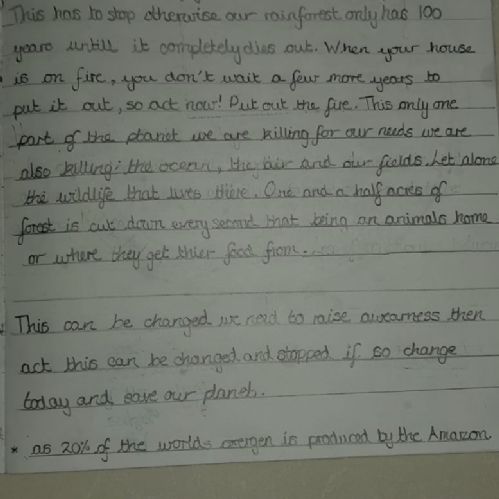 This has to stop otherwise our rainforest only has 100
years untill it completely dies out. When your house
is on fire, you don't wait a few more years to
put it out, so act now! Put out the fire. This only one
part of the planet we are killing for our needs we are
also killing: the ocean, the air and our fields. Let alone
the wildlife that lives there. One and a half acres of
forest is cut down every second that being an animals home
or where they get thier food from.
This can be changed we need to raise awarness then
act this can be changed and stopped if so change
today and save our planet.
* as 20% of the worlds oxegen is produced by the Amazon